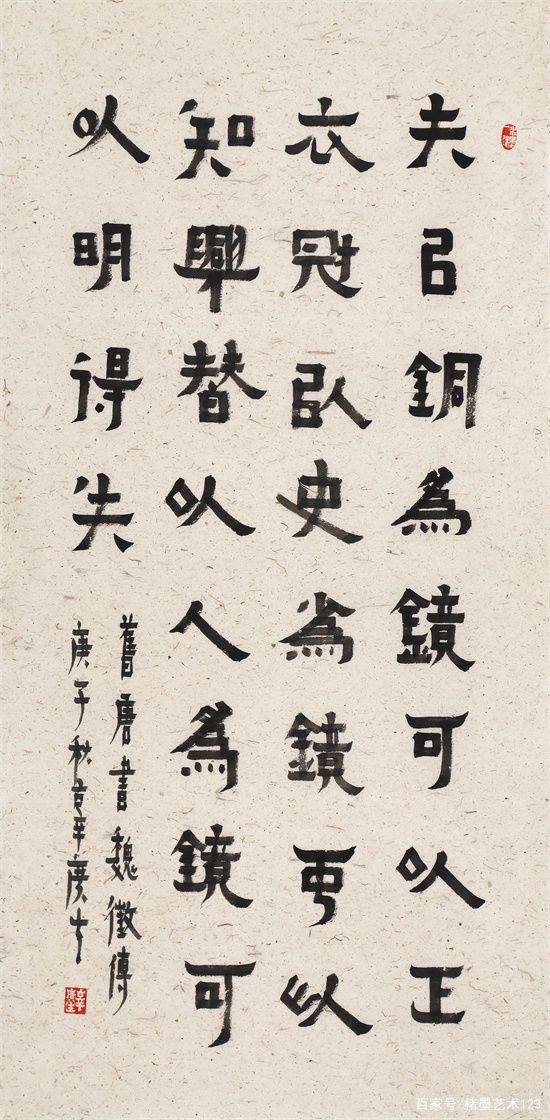 夫㠯銅為鏡可以正
衣冠以史為鏡可以
知興替以人為鏡可
以明得失
舊唐書魏徵傳
庚子秋
百家号/楮墨艺术123